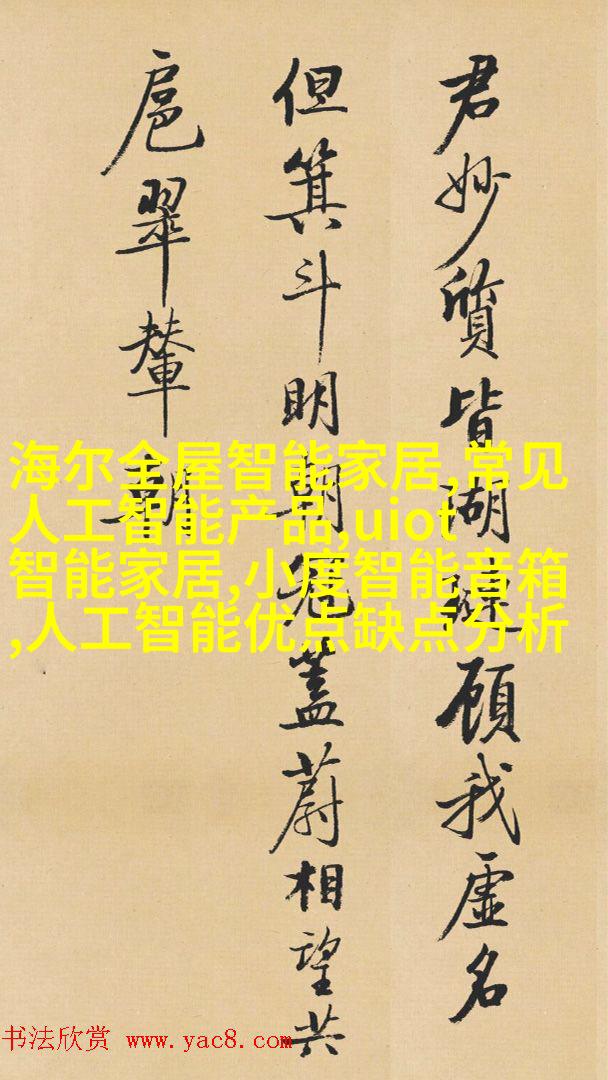 君妙質皆瑚璉顧我虛名
但箕斗明朝冠蓋蔚相望共
扈翠輦朝
海尔全屋智能家居,常见
人工智能产品,uiot
智能家居,小度智能音箱
,人工智能优点缺点分析
书法欣赏 www.yac8.com